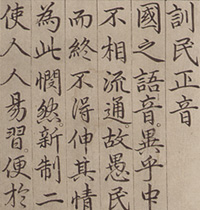 訓民正音
國之語音。異乎中
不相流通。故愚民
而終不得伸其情
為此憫然。新制二
使人人易習。便於